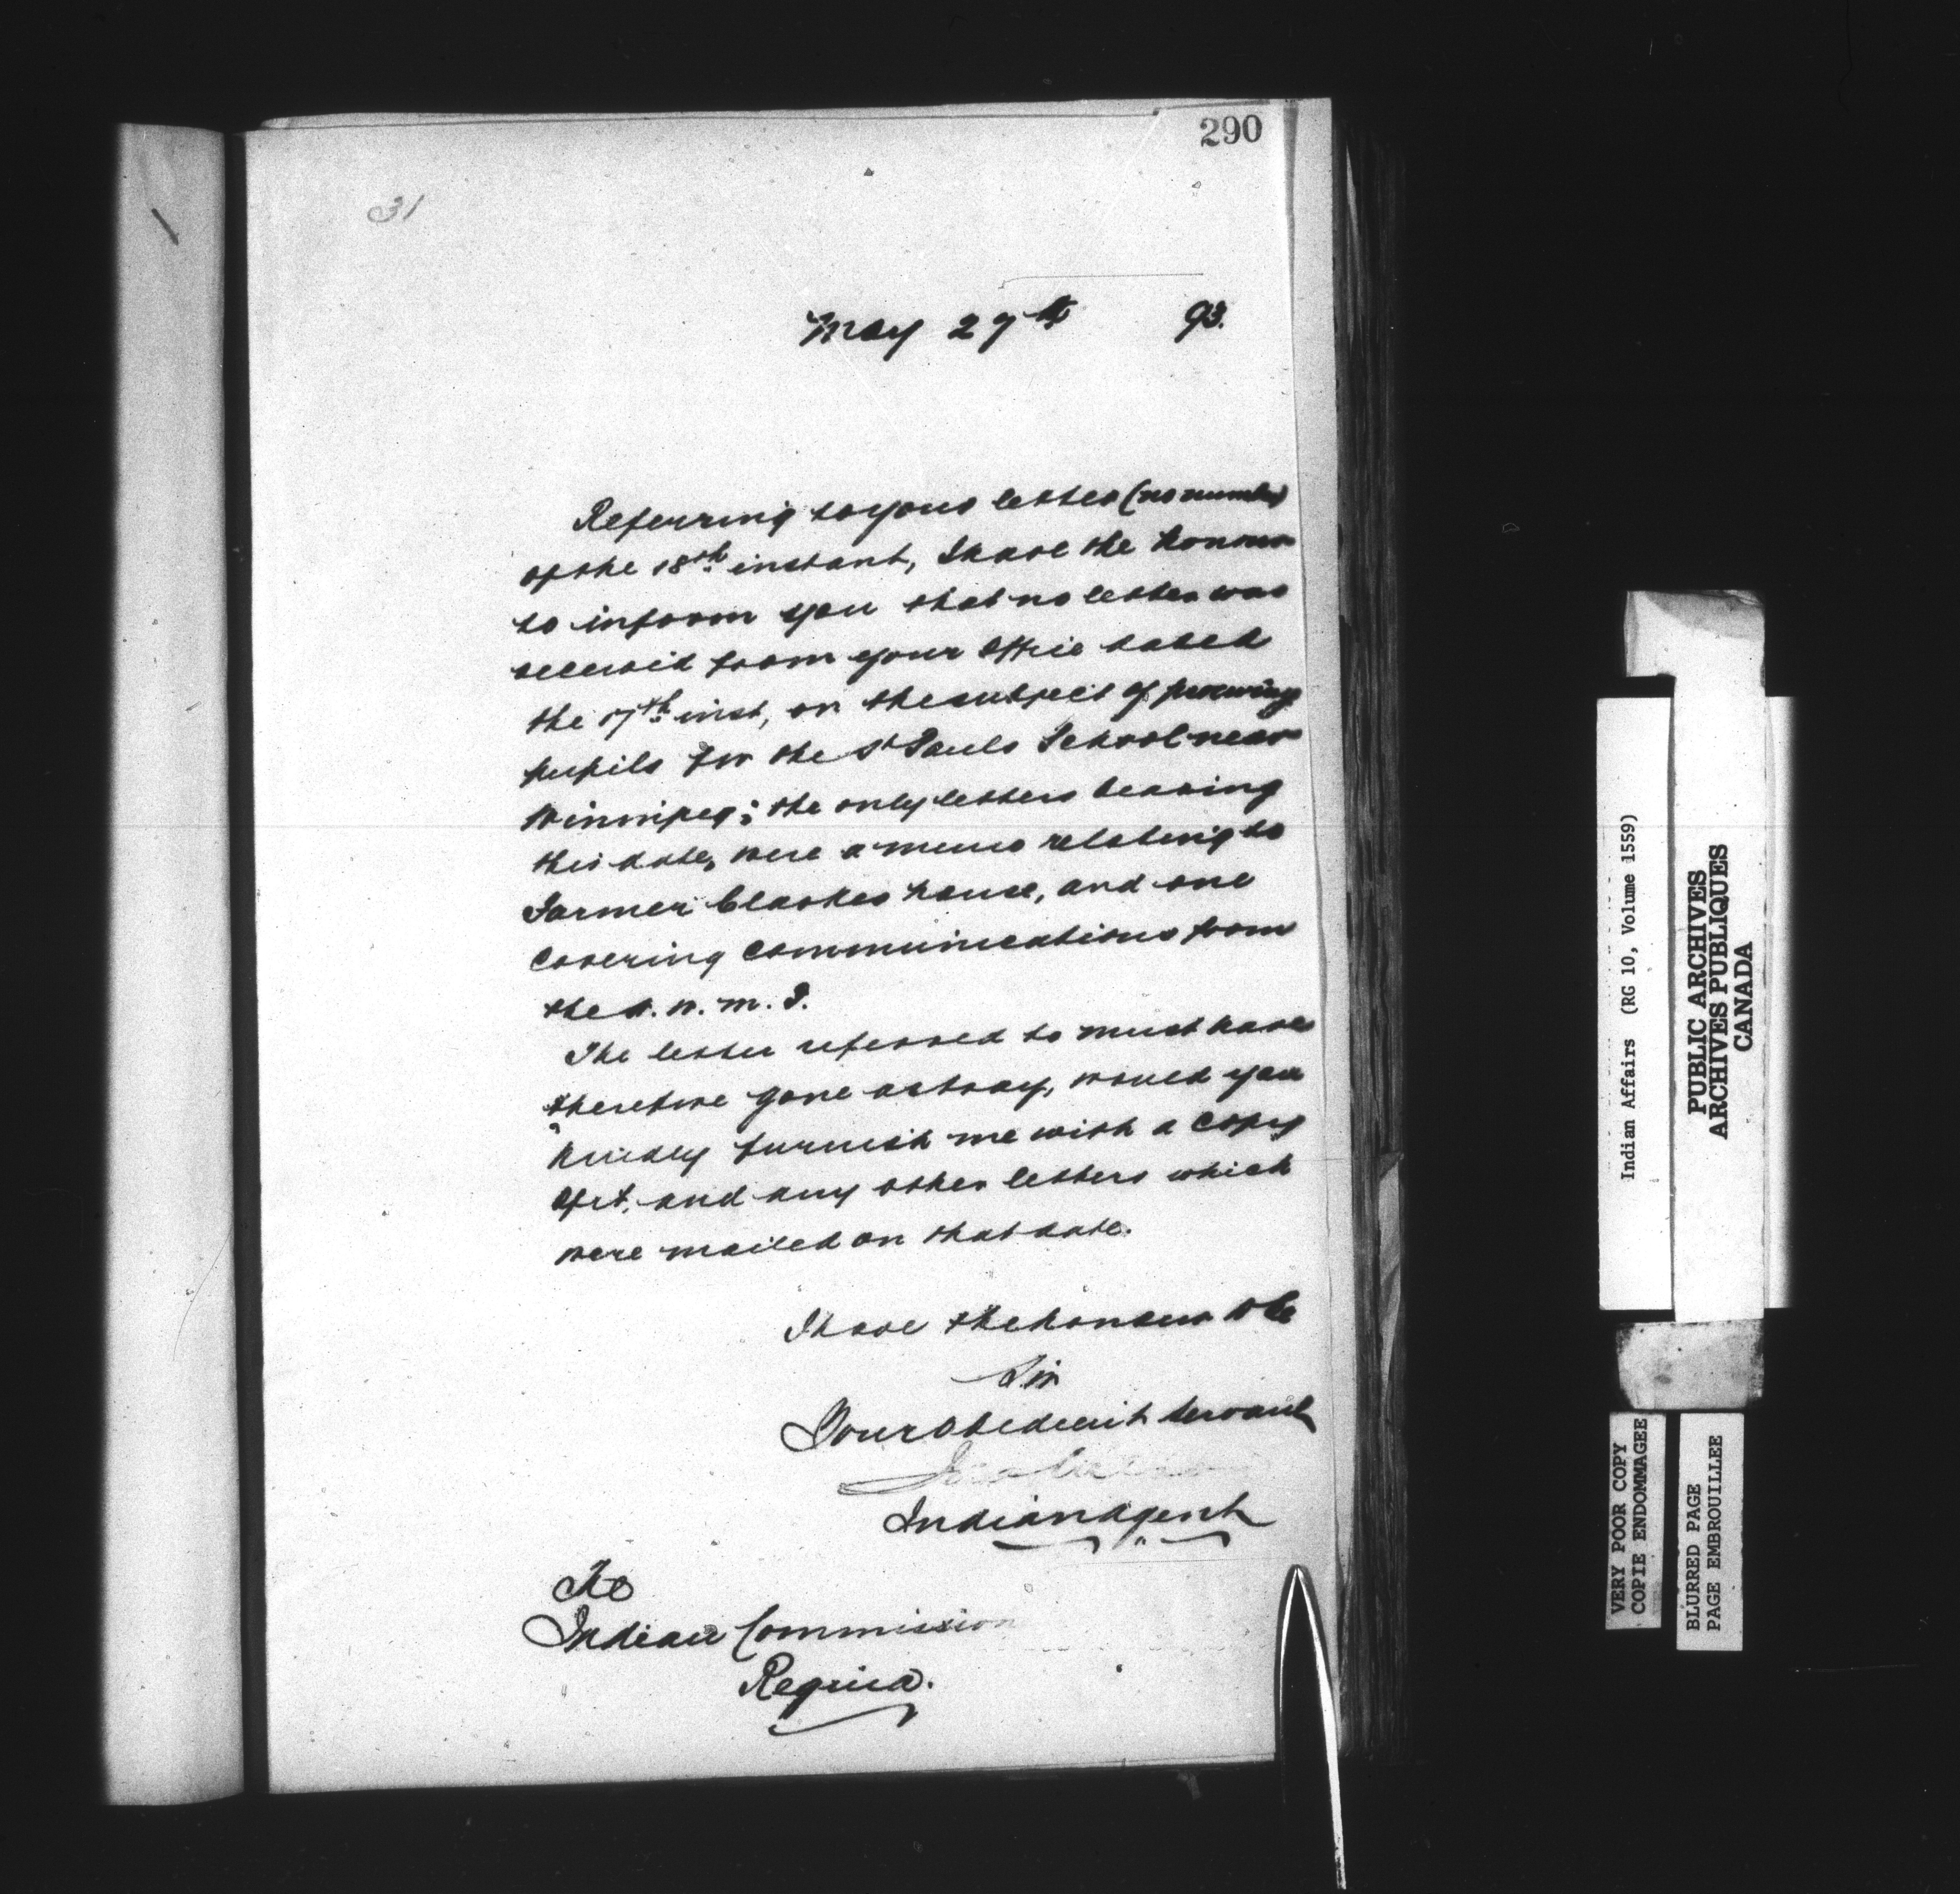 290
31
May 27th 93.
Referring to your letter (no number)
of the 18th instant, I have the honour
to inform you that no letter was
received from your Office dated
the 17th inst, on the subject of procuring
pupils for the St Pauls School near
Winnipeg; the only letters bearing
this date, were a memo relating to
Farmer Clarkes house, and one
covering communications from
the N. W. M. P.
The letter referred to must have
therefore gone astray, would you
kindly furnish me with a copy
of it, and any other letters which
were mailed on that date.
I have the honour to be
Sir
Your Obedient Servant
Indian Agent
To
Indian Commission
Regina.
Indian Affairs (RG 10, Volume 1559)
PUBLIC ARCHIVES
ARCHIVES PUBLIQUES
CANADA
VERY POOR COPY
COPIE ENDOMMAGEE
BLURRED PAGE
PAGE EMBROUILLEE